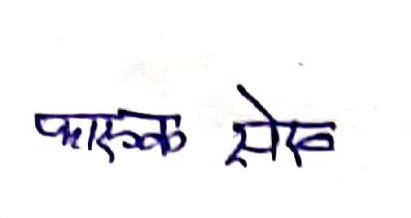 फारूक शेख